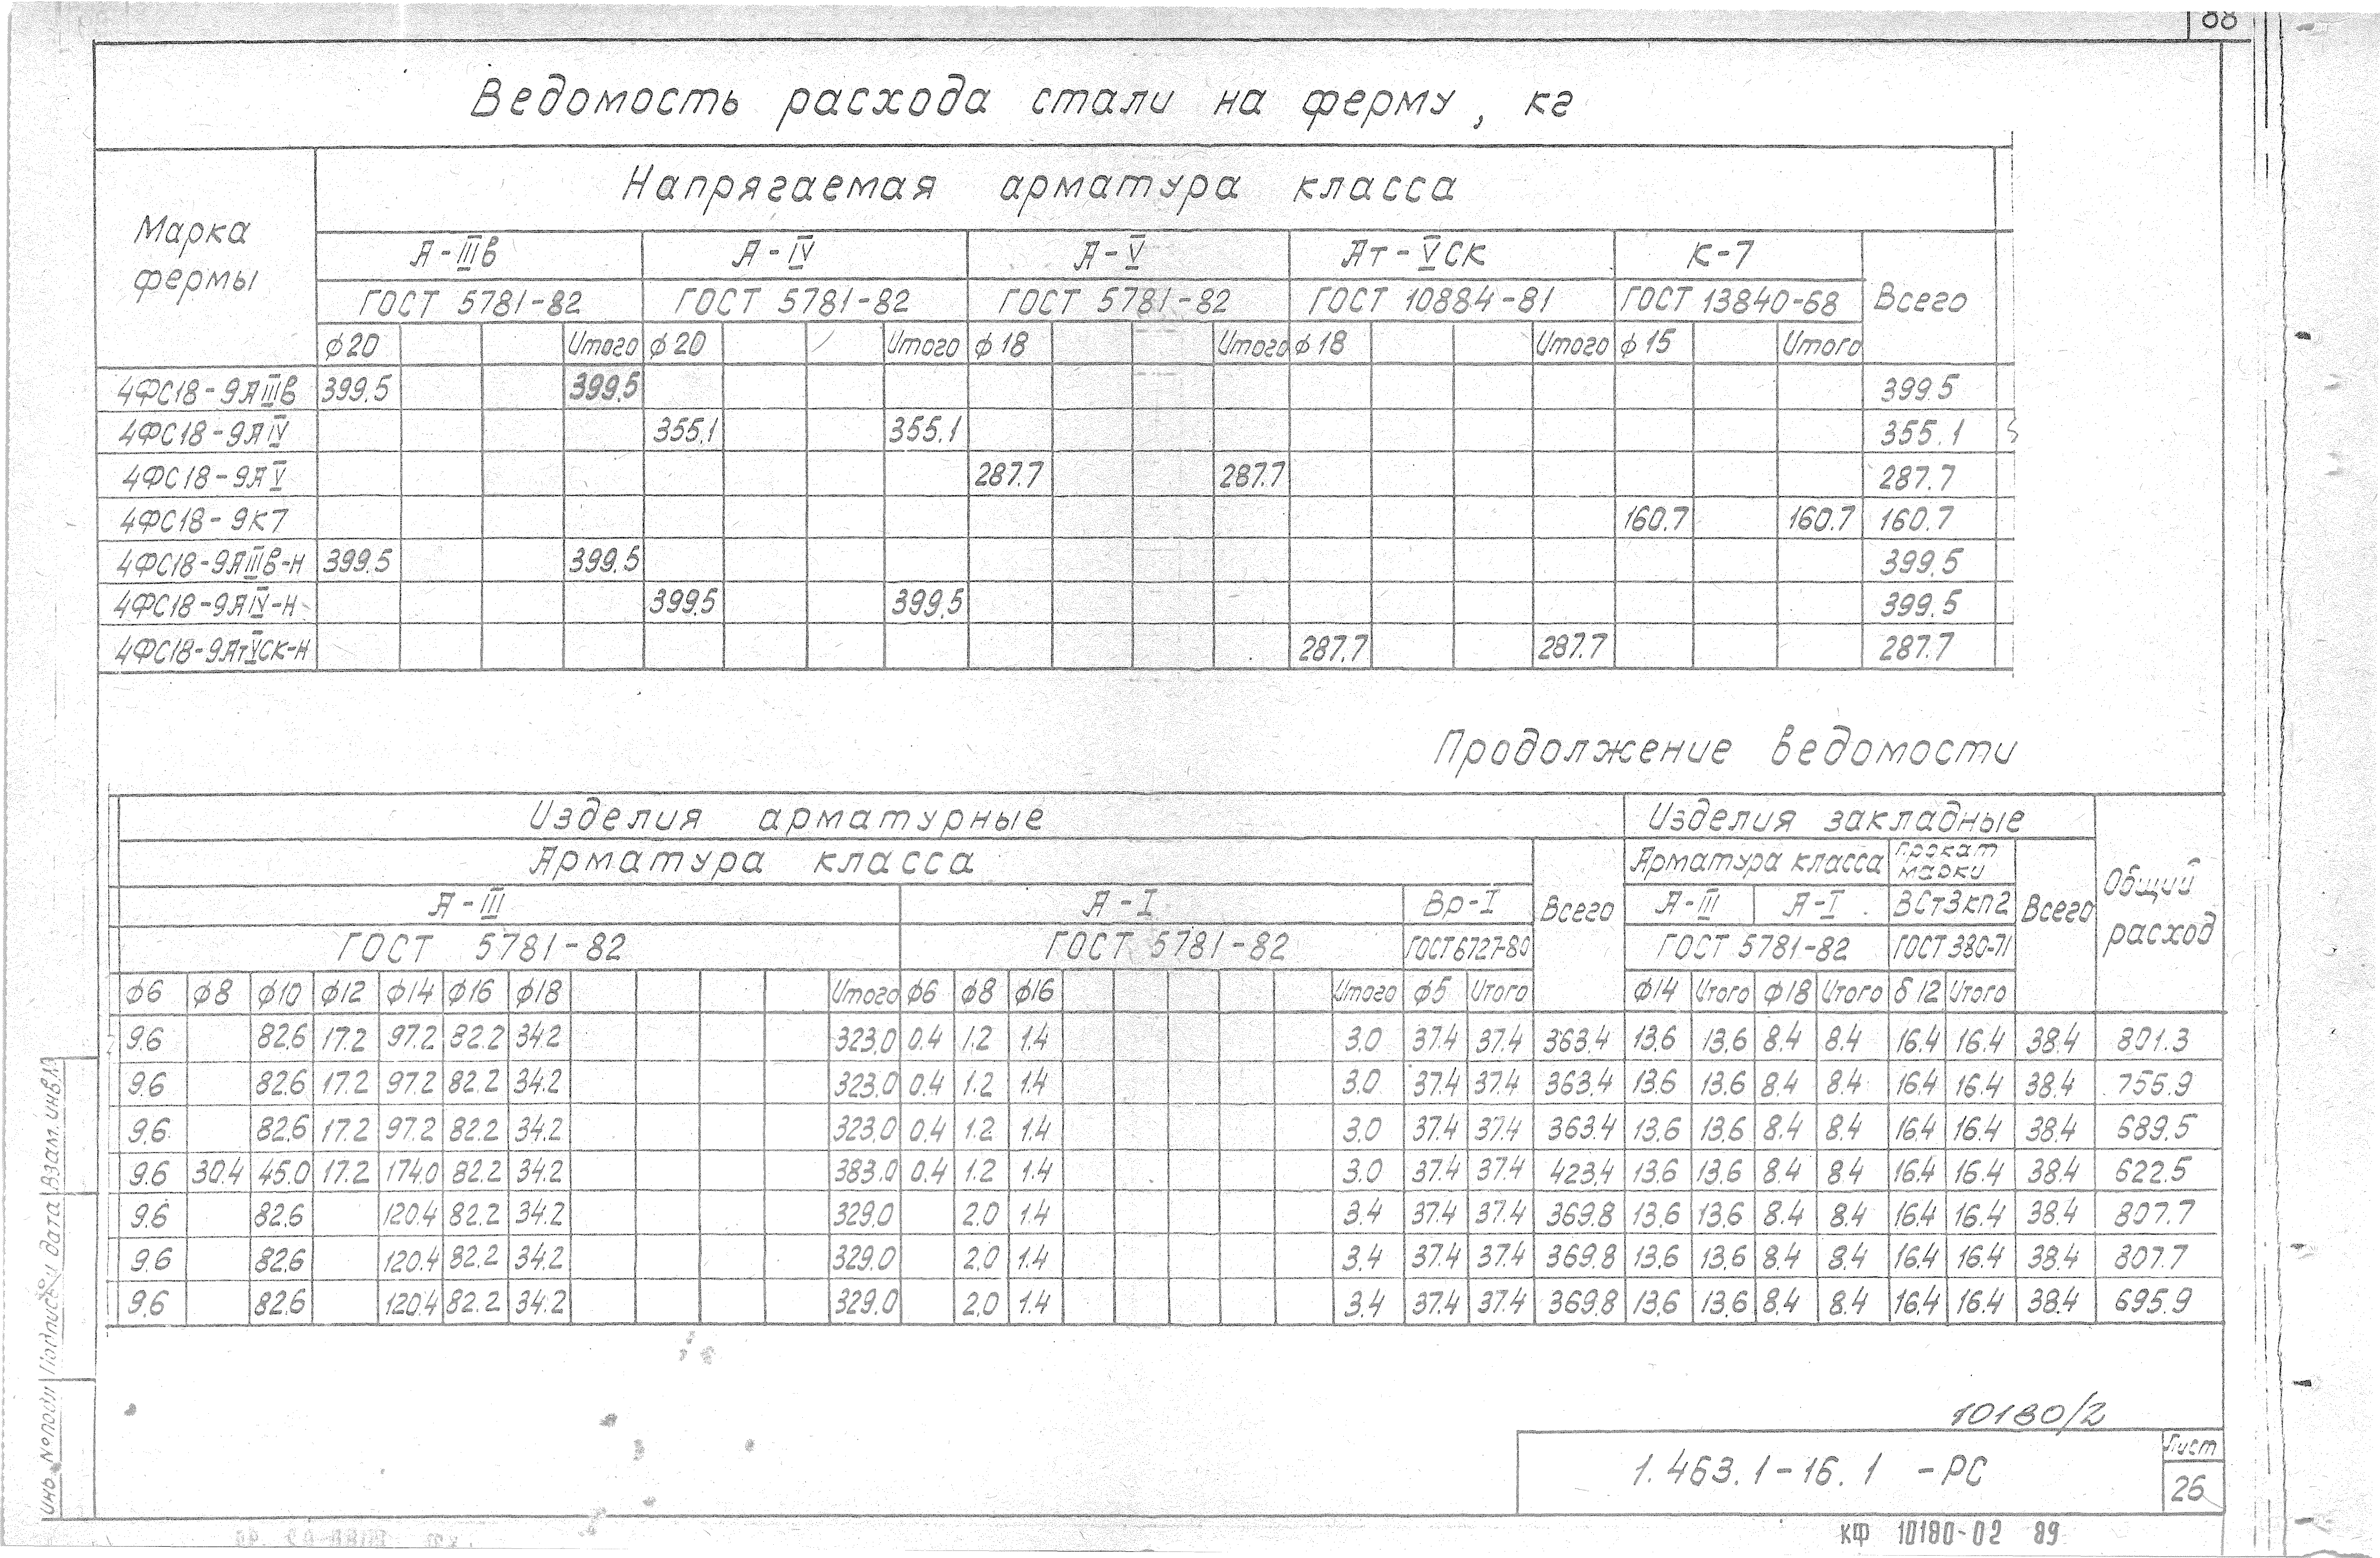 88
Ведомость расхода стали на ферму, кг
Марка фермы
Напрягаемая арматура класса
А-IIIв А-IV А-V Ат-VСК К-7 Всего
ГОСТ 5781-82 ГОСТ 5781-82 ГОСТ 5781-82 ГОСТ 10884-81 ГОСТ 13840-68
ф20 Итого ф20 Итого ф18 Итого ф18 Итого ф15 Итого
4ФС18-9АIIIв 399.5 399.5 399.5
4ФС18-9АIV 355.1 355.1 355.1
4ФС18-9АV 287.7 287.7 287.7
4ФС18-9К7 160.7 160.7 160.7
4ФС18-9АIIIв-Н 399.5 399.5 399.5
4ФС18-9АIV-Н 399.5 399.5 399.5
4ФС18-9АтVСК-Н 287.7 287.7 287.7
Продолжение ведомости
Изделия арматурные Изделия закладные Общий расход
Арматура класса Всего Арматура класса Прокат марки Всего
А-III А-I Вр-I А-III А-I ВСт3кп2
ГОСТ 5781-82 ГОСТ 5781-82 ГОСТ 6727-80 ГОСТ 5781-82 ГОСТ 380-71
ф6 ф8 ф10 ф12 ф14 ф16 ф18 Итого ф6 ф8 ф16 Итого ф5 Итого ф14 Итого ф18 Итого δ12 Итого
9.6 82.6 17.2 97.2 82.2 34.2 323.0 0.4 1.2 1.4 3.0 37.4 37.4 363.4 13.6 13.6 8.4 8.4 16.4 16.4 38.4 801.3
9.6 82.6 17.2 97.2 82.2 34.2 323.0 0.4 1.2 1.4 3.0 37.4 37.4 363.4 13.6 13.6 8.4 8.4 16.4 16.4 38.4 756.9
9.6 82.6 17.2 97.2 82.2 34.2 323.0 0.4 1.2 1.4 3.0 37.4 37.4 363.4 13.6 13.6 8.4 8.4 16.4 16.4 38.4 689.5
9.6 30.4 45.0 17.2 174.0 82.2 34.2 383.0 0.4 1.2 1.4 3.0 37.4 37.4 423.4 13.6 13.6 8.4 8.4 16.4 16.4 38.4 622.5
9.6 82.6 120.4 82.2 34.2 329.0 2.0 1.4 3.4 37.4 37.4 369.8 13.6 13.6 8.4 8.4 16.4 16.4 38.4 807.7
9.6 82.6 120.4 82.2 34.2 329.0 2.0 1.4 3.4 37.4 37.4 369.8 13.6 13.6 8.4 8.4 16.4 16.4 38.4 807.7
9.6 82.6 120.4 82.2 34.2 329.0 2.0 1.4 3.4 37.4 37.4 369.8 13.6 13.6 8.4 8.4 16.4 16.4 38.4 695.9
Инв №подл Подпись и дата Взам. инв.№
10180/2
1.463.1-16.1 -РС
Лист
26
КФ 10180-02 89